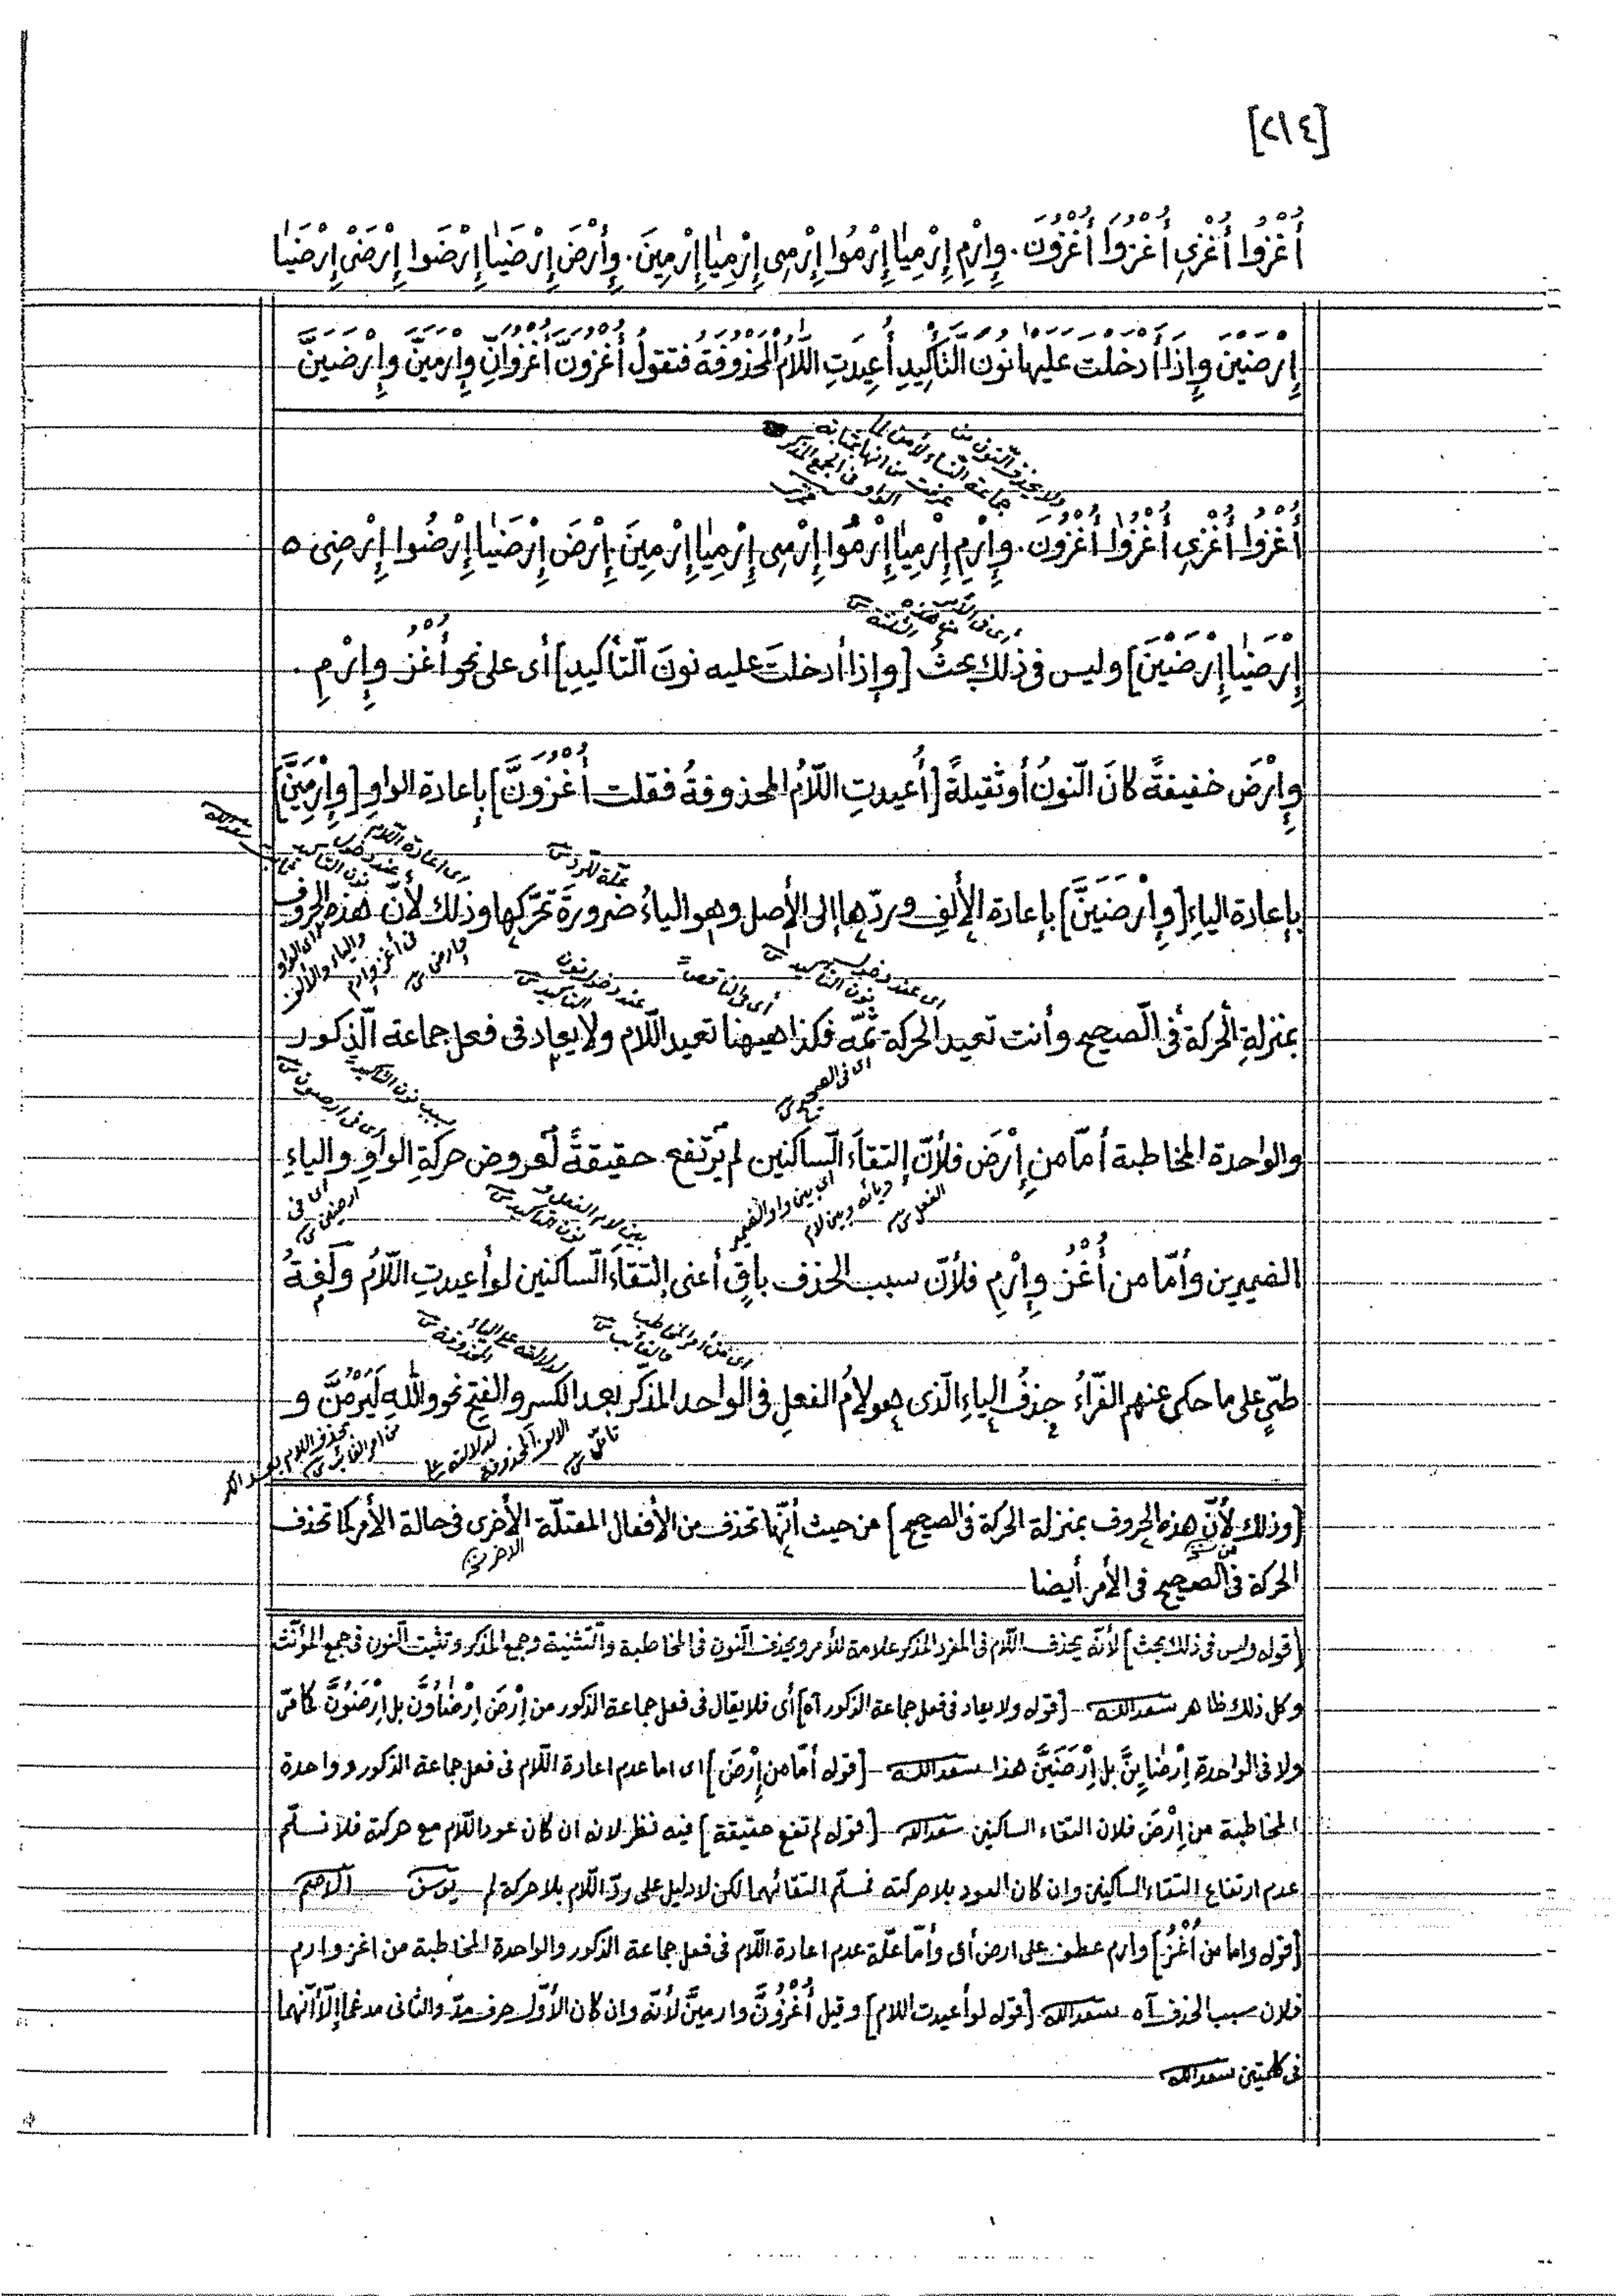 [٢١٤]
أُغْزُوا أُغْزِي أُغْزُوَا أُغْزُونَ. وإِرْمِ إِرْمِيَا إِرْمُوا إِرْمِى إِرْمِيَا إِرْمِينَ. وإِرْضَ إِرْضَيَا إِرْضَوا إِرْضَىْ إِرْضَيَا
إِرْضَيْنَ وإِذَا أَدْخَلْتَ عَلَيهَا نُونَ التَّاكِيدِ أُعِيدَتِ اللَّامُ الْمَحْذُوفَةُ فتقولُ أُغْزُوَنَّ أُغْزُوَانِّ وإِرْمِيَنَّ وإِرْضَيَنَّ
ولا يحذف النون من
جماعة النساء لأمن لما
عرفت من انها بمثابة
الواو فى الجمع المذكر
أُغْزُوا أُغْزِى أُغْزُوَا أُغْزُونَ. وإِرْمِ إِرْمِيَا إِرْمُوا إِرْمِى إِرْمِيَا إِرْمِينَ. إِرْضَ إِرْضَيَا إِرْضُوا إِرْضِىْ
إِرْضَيَا إِرْضَيْنَ] وليس فى ذلك بحثُ [وإذا أدخلتَ عليه نونَ التّأكيدِ] أى على نحو أُغْزُ وإِرْمِ.
وإِرْضَ خفيفةً كانَ النّونُ أو ثقيلةً [أُعيدتِ اللّامُ المحذوفةُ فقلت أُغْزُوَنَّ] بإعادة الواوِ [وإِرْمِيَنَّ]
علّة للردّ
اى اعادة اللام
عند دخول
نون التأكيد
بإعادة الياءِ [وإِرْضَيَنَّ] بإعادة الألِفِ وردّها إلى الأصل وهو الياءُ ضرورةَ تحرّكها وذلك لأنّ هذه الحروف
اى عند دخول
نون التأكيد
أى فى الناقص
عند دخول نون
التأكيد
بمنزلةِ الحركة فى الصّحيح وأنت تعيد الحركة ثمّه فكذا ههنا تعيد اللّام ولا يعاد فى فعل جماعة الذّكور
اى فى الصحيح
بسبب نون التأكيد
والواحدة المخاطبة أمّا من إِرْضَ فلأنّ إلتقاءَ السّاكنين لم يرتفع حقيقةً لعروض حركةِ الواوِ والياءِ
اى بين واو الضمير
ويائه وبين لام
الفعل
بين لام الفعل و
نون التأكيد
الضميرين وأمّا من أُغْزُ وإِرْمِ فلأنّ سبب الحذف باقٍ أعنى إلتقاءَ السّاكنين لو أعيدتِ اللّامُ ولغةُ
اى من أمر المخاطب
والغائب
لدلالته على الياء
المحذوفة
طىّءٍ على ما حكى عنهم الفرّاءُ حذفُ الياءِ الّذى هو لامُ الفعلِ فى الواحد المذكّر بعد الكسر والفتح نحو واللّهِ لَيَرْمُنَّ و
[وذلك لأنّ هذه الحروف بمنزلة الحركة فى الصحيح] من حيث أنّها تحذف من الأفعال المعتلّة الأخرى فى حالة الأمر كما تحذف
الحركة فى الصحيح فى الأمر أيضا
[قوله وليس فى ذلك بحث] لأنّه يحذف اللّام فى المفرد المذكر علامة للأمر ويحذف النّون فى المخاطبة والتثنية وجمع المذكر وتثبت النّون فى جمع المؤنّث
وكل ذلك ظاهر سعدالله [قوله ولا يعاد فى فعل جماعة الذكور آه] أى فلا يقال فى فعل جماعة الذكور من إِرْضَ إِرْضَاوُنَّ بل إِرْضَوُنَّ كما مرّ
ولا فى الواحدة إِرْضَايِنَّ بل إِرْضَيَنَّ هذا سعدالله [قوله أمّا من إِرْضَ] اى اما عدم اعادة اللّام فى فعل جماعة الذكور وواحدة
المخاطبة من إِرْضَ فلان التقاء الساكنين سعدالله [قوله لم تفع حقيقة] فيه نظر لانه ان كان عود اللّام مع حركته فلا نسلّم
عدم ارتفاع التقاء الساكنين وان كان العود بلا حركته فسلّم التقائهما لكن لا دليل على ردّ اللّام بلا حركة لم يوسف الاصم
[قوله واما من أُغْزُ] وارم عطف على ارض أى وأمّا علّة عدم اعادة اللّام فى فعل جماعة الذكور والواحدة المخاطبة من اغز وارم
فلان سبب الحذف آه سعدالله [قوله لو أعيدت اللام] وقيل أُغْزُونَّ وارمينّ لأنّه وان كان الأوّل حرف مدّ والثانى مدغما إلّا أنّهما
فى كلمتين سعدالله